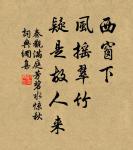 西窗下
風搖翠竹
疑是故人来
秦觀滿庭芳碧水惊秋
詞典網集